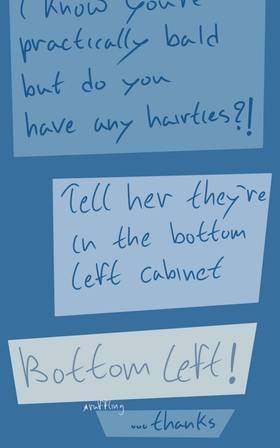 I know you're
practically bald
but do you
have any hairties?!
Tell her they're
in the bottom
left cabinet
Bottom left!
*ruffling
...thanks